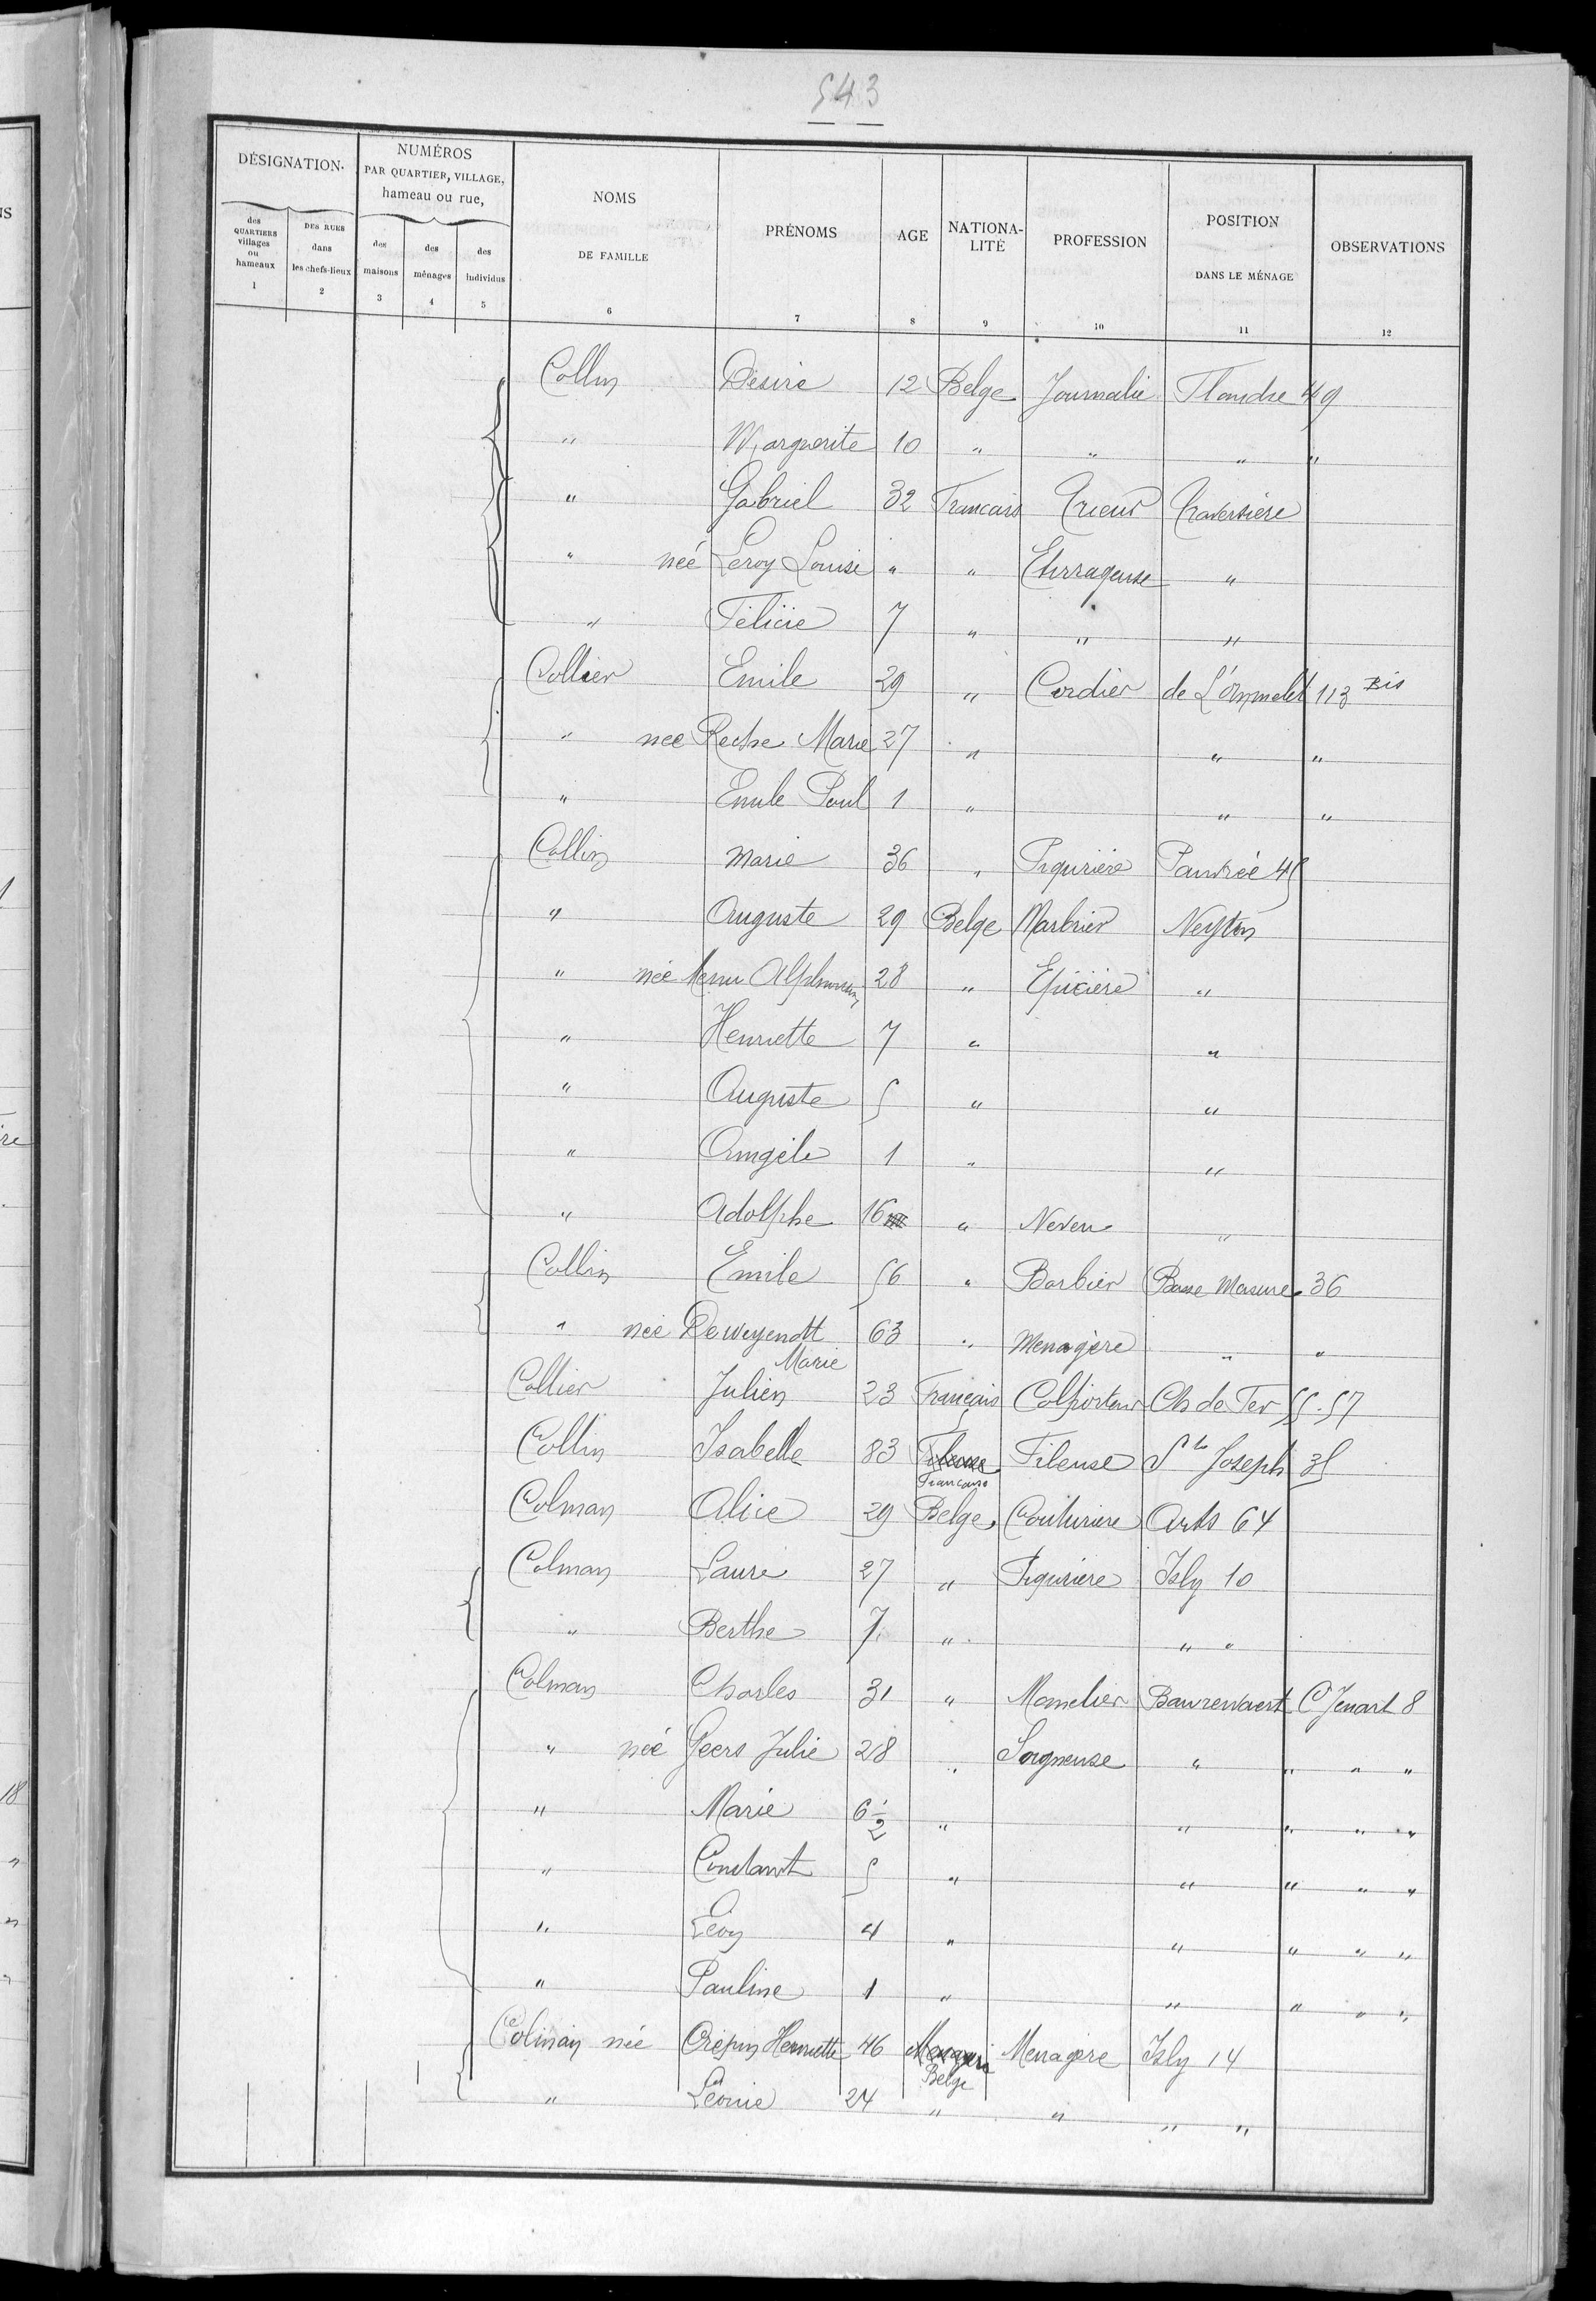 543
DÉSIGNATION
NUMÉROS PAR QUARTIER, VILLAGE, hameau ou rue,
NOMS DE FAMILLE
PRÉNOMS
AGE
NATIONALITÉ
PROFESSION
POSITION DANS LE MÉNAGE
OBSERVATIONS
des QUARTIERS villages ou hameaux
DES RUES dans les chefs-lieux
des maisons
des ménages
des individus
1 2 3 4 5 6 7 8 9 10 11 12
Collin Désiré 12 Belge Journalie Flandre 49
" Marguerite 10 " " " "
" Gabriel 32 Francais Trieur Traversière
" née Leroy Louise " " "
" Félicie 7 " " "
Collier Emile 29 " Cordier de L'Ommelet 113 Bis
" nee Marie 27 " " "
" Emile Paul 1 " " "
Collin Marie 36 " Piqurière Pauvrée 45
" Auguste 29 Belge Marbrier Neyton
" née Menu 28 " Epicière "
" Henriette 7 " "
" Auguste 5 " "
" Angèle 1 " "
" Adolphe 16 " Neveu "
Collin Emile 56 " Barbier Basse Masure 36
" née Deweyendtt Marie 63 " Menagère " "
Collier Julien 23 Français Colporteur Ch de Fer 55.57
Collin Isabelle 83 Fileuse Francaise Fileuse St Joseph 35
Colman Alice 29 Belge Couturiere Arts 64
Colman Laure 27 " Piqurière Isly 10
" Berthe 7 " " "
Colman Charles 31 " Baurenvaert C Jenart 8
" née Geers Julie 28 " Soigneuse " " " "
" Marie 6 1/2 " " " " "
" Constant 5 " " " " "
" Léon 4 " " " " "
" Pauline 1 " " " " "
Colman née Crépin Henriette 46 Menagère Belge Menagère Isly 14
" Léonie 24 " " " "